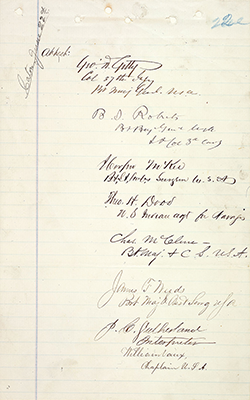 22c
Attest:
Geo. W. Getty
Col 37th Inf
Bt Maj Genl U.S.A.
B. S. Roberts
Bt Brg Gen U.S.A.
Lt Col 3d Cav
J. Cooper McKee
Bt Lt Col Surgeon U.S.A.
Theo. H. Dodd
U.S. Indian Agt for Navajos
Chas McClure
Bt Maj & C.S. U.S.A.
James F. Weeds
Bt Maj & Asst Surg U.S.A.
J. C. Sutherland
Interpreter
William Vaux
Chaplain U.S.A.